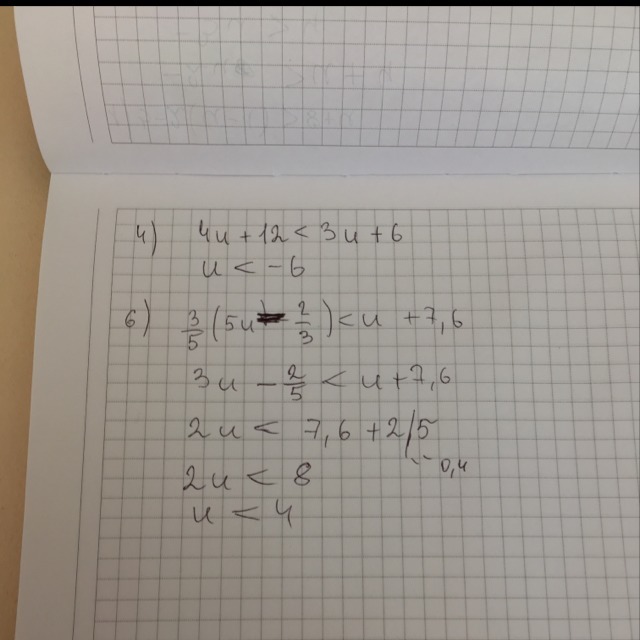 4) 4u + 12 < 3u + 6
u < -6
6) 3/5 (5u - 2/3) < u + 7,6
3u - 2/5 < u + 7,6
2u < 7,6 + 2/5
0,4
2u < 8
u < 4